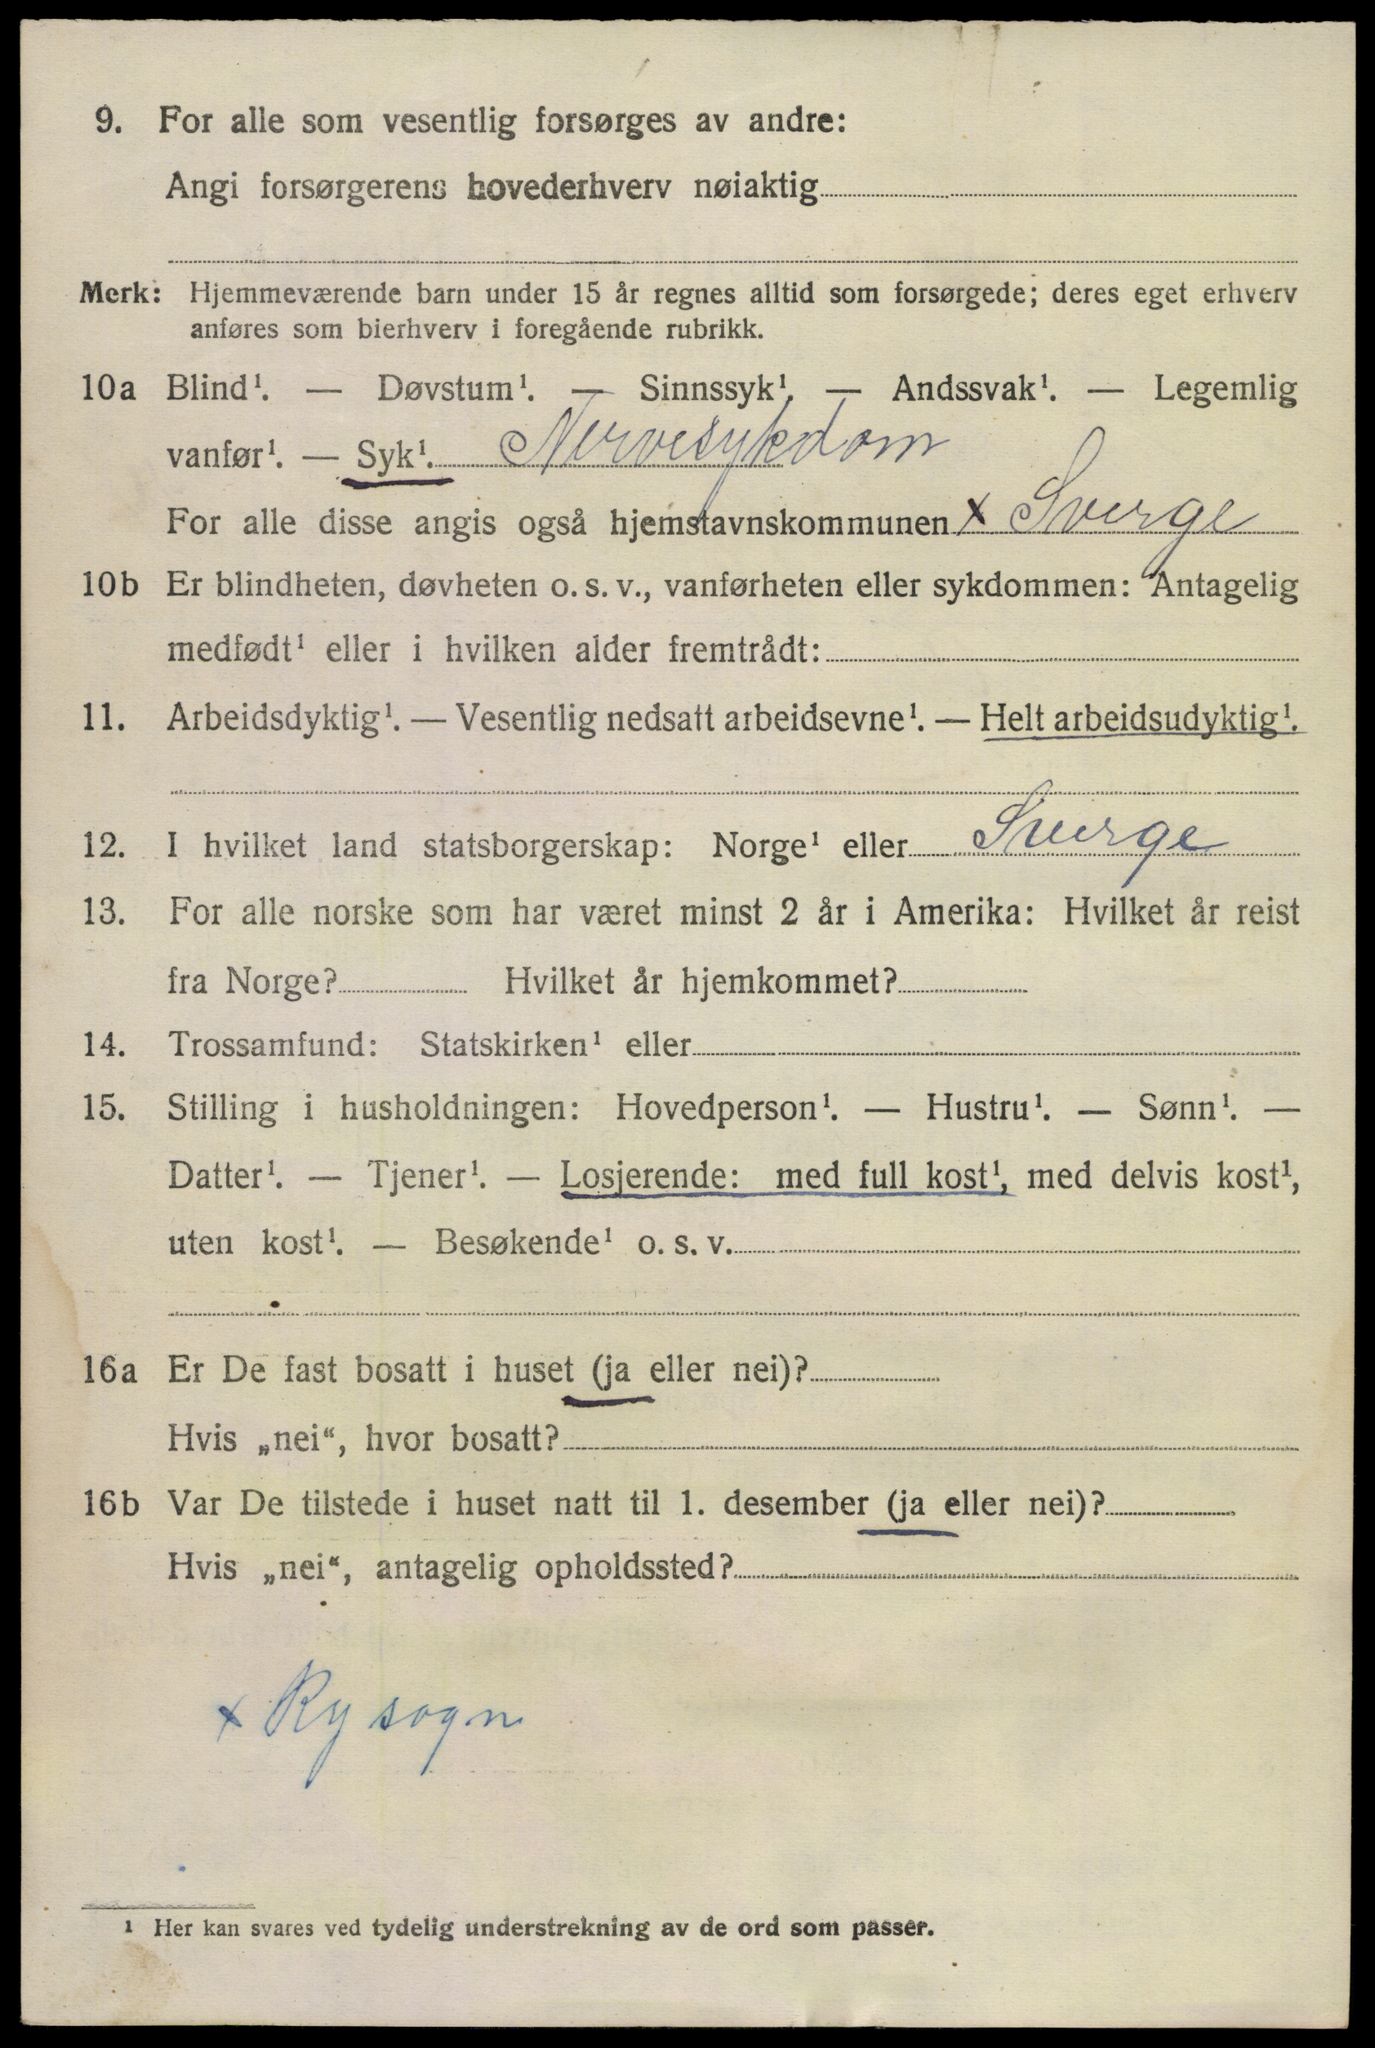 9. For alle som vesentlig forsørges av andre:
Angi forsørgerens hovederhverv nøiaktig
Merk: Hjemmeværende barn under 15 år regnes alltid som forsørgede; deres eget erhverv
anføres som bierhverv i foregående rubrikk.
10a Blind¹. — Døvstum¹. — Sinnssyk¹. — Andssvak¹. — Legemlig
vanfør¹. — Syk¹. Nervesykdom
For alle disse angis også hjemstavnskommunen x Sverge
10b Er blindheten, døvheten o. s. v., vanførheten eller sykdommen: Antagelig
medfødt¹ eller i hvilken alder fremtrådt:
11. Arbeidsdyktig¹. — Vesentlig nedsatt arbeidsevne¹. — Helt arbeidsudyktig¹.
12. I hvilket land statsborgerskap: Norge¹ eller Sverge
13. For alle norske som har været minst 2 år i Amerika: Hvilket år reist
fra Norge? Hvilket år hjemkommet?
14. Trossamfund: Statskirken¹ eller
15. Stilling i husholdningen: Hovedperson¹. — Hustru¹. — Sønn¹. —
Datter¹. — Tjener¹. — Losjerende: med full kost¹, med delvis kost¹,
uten kost¹. — Besøkende¹ o. s. v.
16a Er De fast bosatt i huset (ja eller nei)?
Hvis „nei“, hvor bosatt?
16b Var De tilstede i huset natt til 1. desember (ja eller nei)?
Hvis „nei“, antagelig opholdssted?
x Ry sogn
¹ Her kan svares ved tydelig understrekning av de ord som passer.